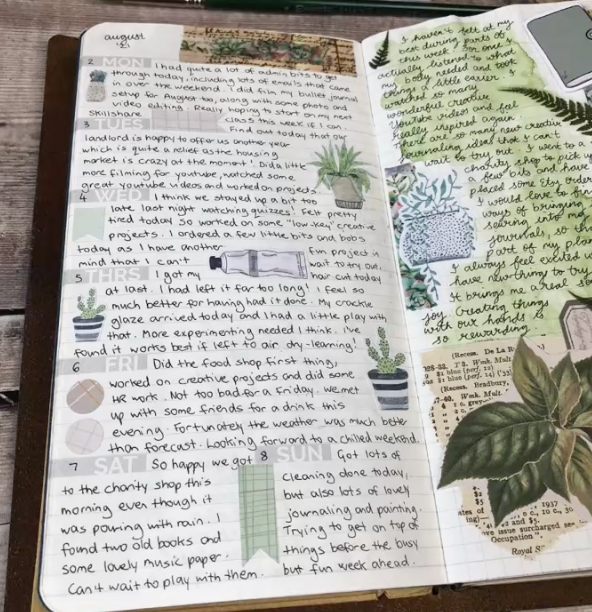 august
'21
2 MON I had quite a lot of admin bits to get
through today, including lots of emails that came
in over the weekend. I did film my bullet journal
setup for August too, along with some photo and
video editing. Really hoping to start on my next
Skillshare class this week if I can.
3 TUES Find out today that our
landlord is happy to offer us another year
which is quite a relief as the housing
market is crazy at the moment! Did a little
more filming for youtube, watched some
great youtube videos and worked on projects.
4 WED I think we stayed up a bit too
late last night watching quizzes! Felt pretty
tired today so worked on some "low-key" creative
projects. I ordered a few little bits and bobs
today as I have another fun project in
mind that I can't wait to try out.
5 THRS I got my hair cut today
at last. I had left it far too long! I feel so
much better for having had it done. My crackle
glaze arrived today and I had a little play with
that. More experimenting needed I think. I've
found it works best if left to air dry - learning!
6 FRI Did the food shop first thing,
worked on creative projects and did some
HR work. Not too bad for a Friday. We met
up with some friends for a drink this
evening. Fortunately the weather was much better
than forecast. Looking forward to a chilled weekend.
7 SAT So happy we got
to the charity shop this
morning even though it
was pouring with rain. I
found two old books and
some lovely music paper.
Can't wait to play with them.
8 SUN Got lots of
cleaning done today,
but also lots of lovely
journaling and painting.
Trying to get on top of
things before the busy
but fun week ahead.
I haven't felt at my
best during parts of
this week. For once I
actually listened to what
my body needed and took
things a little easier. I
watched so many
wonderful creative
Youtube videos and feel
really inspired again.
There are so many new creative
journaling ideas that I can't
wait to try out. I went to a
charity shop to pick up
a few bits and have
placed some Etsy orders
I would love to find
ways of bringing
sewing into my
journals, so that
part of my plan
I always feel excited
have new things to try
It brings me a real
joy. Creating things
with our hands is
so rewarding.
(Recess. De La R
(Recess. Bradbury,
Wmk. Mult.
1937
and $5.
issue surcharged
Occupation".
Royal S